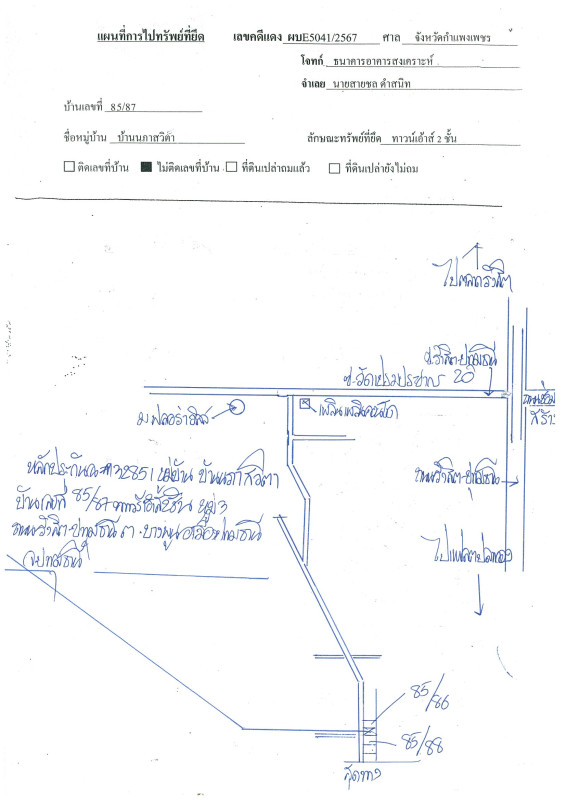 แผนที่การไปทรัพย์ที่ยึด เลขคดีแดง ผบE5041/2567 ศาล จังหวัดกำแพงเพชร
โจทก์ ธนาคารอาคารสงเคราะห์
จำเลย นายสายชล คำสนิท
บ้านเลขที่ 85/87
ชื่อหมู่บ้าน บ้านนภาสวิต้า ลักษณะทรัพย์ที่ยึด ทาวน์เฮ้าส์ 2 ชั้น
ติดเลขที่บ้าน ไม่ติดเลขที่บ้าน ที่ดินเปล่าถมแล้ว ที่ดินเปล่ายังไม่ถม
ไปตลาดรังสิต
ซ.รังสิต-ปทุมธานี 20
ซ.วัดเปรมประชากร
หลักประกัน 2851 หมู่บ้าน บ้านนภาสวิตา
บ้านเลขที่ 85/87 หมู่ 3
ถนนรังสิต-ปทุมธานี ต.บางพูน อ.เมืองปทุมธานี
จ.ปทุมธานี
ถนนรังสิต-ปทุมธานี
85/86
85/88
สุดทาง